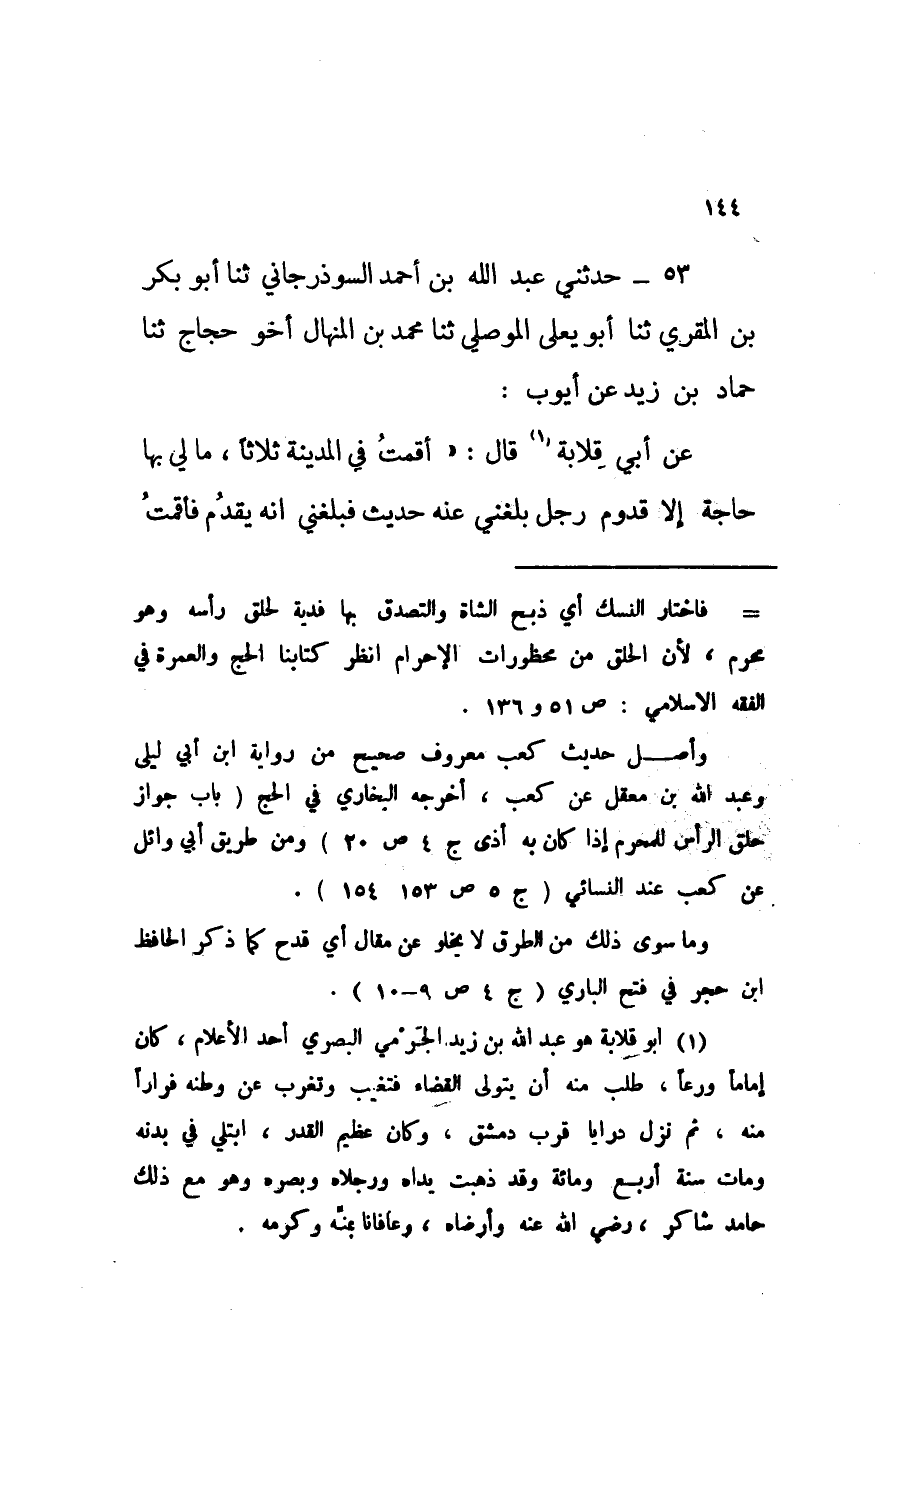 ١٤٤
٥٣ ــ حدثني عبد الله بن أحمد السوذرجاني ثنا أبو بكر
بن المقري ثنا أبو يعلى الموصلي ثنا محمد بن المنهال أخو حجاج ثنا
حماد بن زيد عن أيوب :
عن أبي قِلابة (١) قال : « أقمتُ في المدينة ثلاثاً ، ما لي بها
حاجة إلا قدوم رجل بلغني عنه حديث فبلغني انه يقدُم فأقمتُ
= فاختار النسك أي ذبح الشاة والتصدق بها فدية لحلق رأسه وهو
محرم ، لأن الحلق من محظورات الإحرام انظر كتابنا الحج والعمرة في
الفقه الاسلامي : ص ٥١ و ١٣٦ .
وأصــل حديث كعب معروف صحيح من رواية ابن أبي ليلى
وعبد الله بن معقل عن كعب ، أخرجه البخاري في الحج ( باب جواز
حلق الرأس للمحرم إذا كان به أذى ج ٤ ص ٢٠ ) ومن طريق أبي وائل
عن كعب عند النسائي ( ج ٥ ص ١٥٣ ١٥٤ ) .
وما سوى ذلك من الطرق لا يخلو عن مقال أي قدح كما ذكر الحافظ
ابن حجر في فتح الباري ( ج ٤ ص ٩–١٠ ) .
(١) ابو قلابة هو عبد الله بن زيد الجَرْمي البصري أحد الأعلام ، كان
إماماً ورعاً ، طلب منه أن يتولى القضاء فتغيب وتغرب عن وطنه فراراً
منه ، ثم نزل درايا قرب دمشق ، وكان عظيم القدر ، ابتلي في بدنه
ومات سنة أربع ومائة وقد ذهبت يداه ورجلاه وبصره وهو مع ذلك
حامد شاكر ، رضي الله عنه وأرضاه ، وعافانا بمنّه وكرمه .